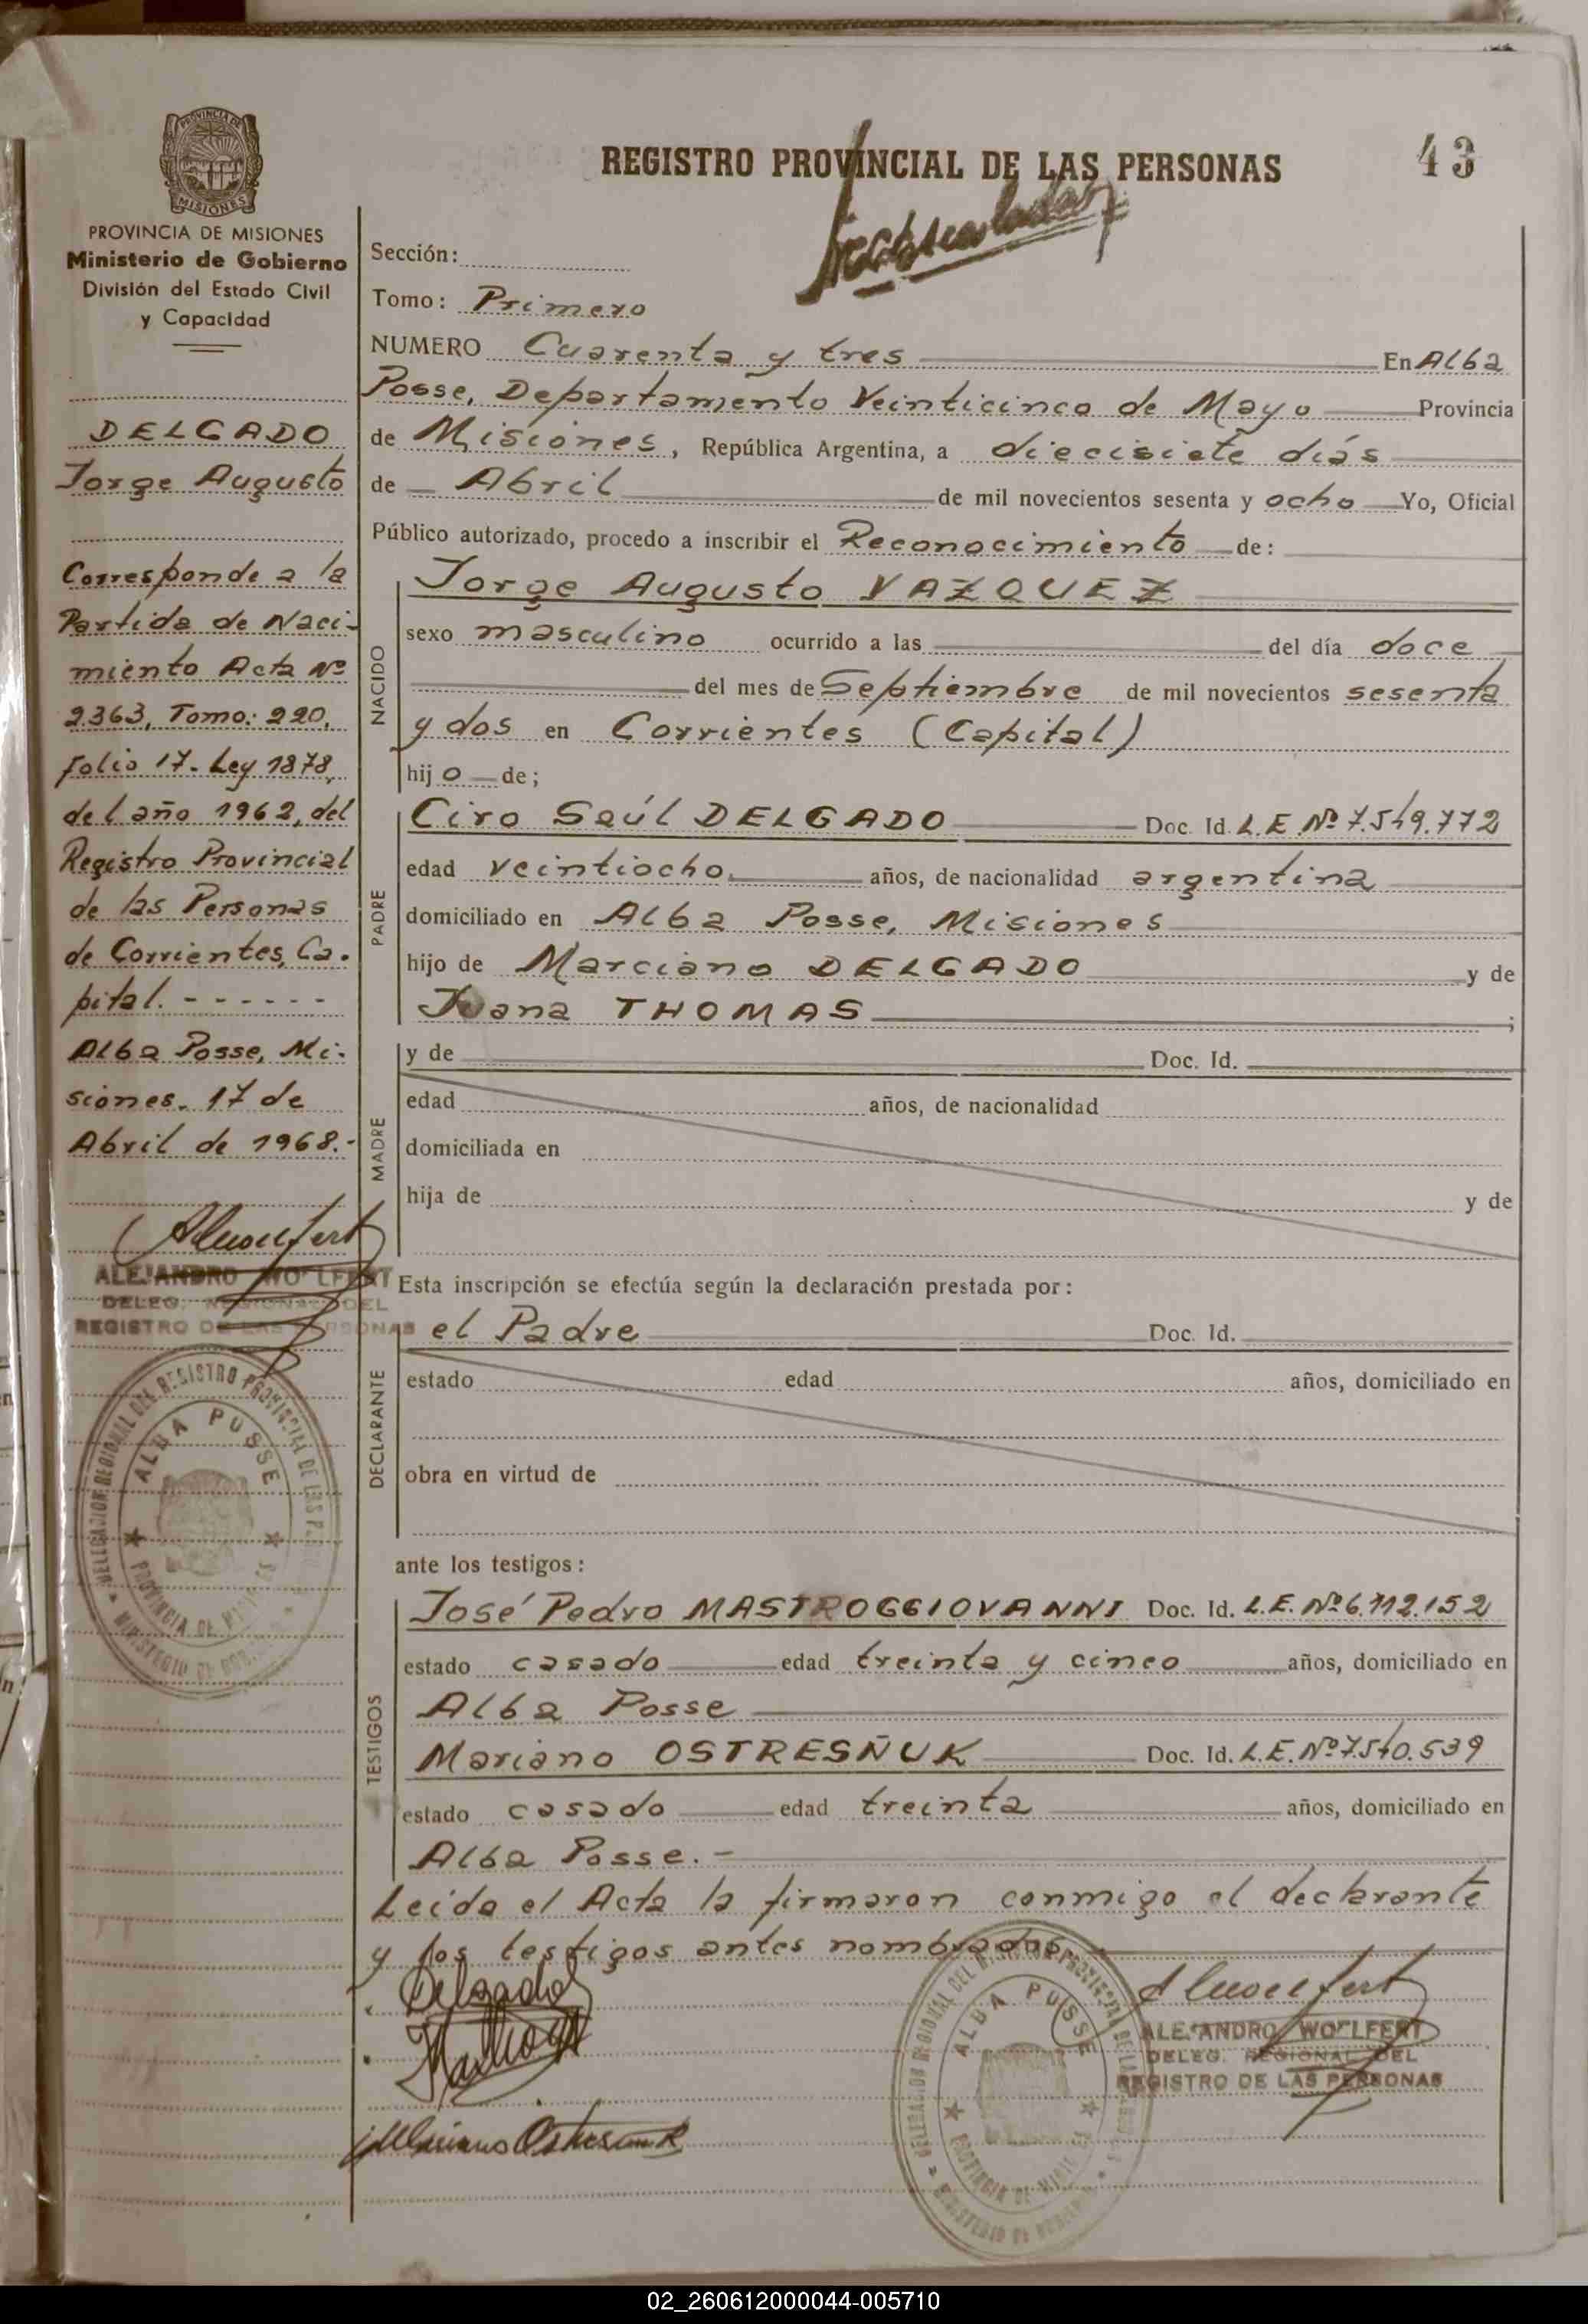 REGISTRO PROVINCIAL DE LAS PERSONAS
43
PROVINCIA DE
MISIONES
PROVINCIA DE MISIONES
Ministerio de Gobierno
División del Estado Civil
y Capacidad
DELGADO
Jorge Augusto
Corresponde a la
Partida de Naci-
miento Acta Nº
2363, Tomo: 220,
folio 17- Ley 1878,
del año 1962, del
Registro Provincial
de las Personas
de Corrientes, Ca-
pital. - - - - - -
Alba Posse, Mi-
siones. 17 de
Abril de 1968.-
ALEJANDRO WOLFERT
DELEG. REGIONAL DEL
REGISTRO DE LAS PERSONAS
DELEGACION REGIONAL DEL REGISTRO PROVINCIAL DE LAS P.
ALBA POSSE
PROVINCIA DE MISIONES
MINISTERIO DE GOB.
Sección:
Tomo: Primero
NUMERO Cuarenta y tres En Alba
Posse, Departamento Veinticinco de Mayo Provincia
de Misiones, República Argentina, a diecisiete días
de Abril de mil novecientos sesenta y ocho Yo, Oficial
Público autorizado, procedo a inscribir el Reconocimiento de:
NACIDO
Jorge Augusto VAZQUEZ
sexo masculino ocurrido a las del día doce
del mes de Septiembre de mil novecientos sesenta
y dos en Corrientes (Capital)
hijo de;
PADRE
Ciro Saúl DELGADO Doc. Id. L.E. Nº 7.549.772
edad veintiocho años, de nacionalidad argentina
domiciliado en Alba Posse, Misiones
hijo de Marciano DELGADO y de
Juana THOMAS ;
MADRE
y de Doc. Id.
edad años, de nacionalidad
domiciliada en
hija de y de
Esta inscripción se efectúa según la declaración prestada por:
DECLARANTE
el Padre Doc. Id.
estado edad años, domiciliado en
obra en virtud de
ante los testigos:
TESTIGOS
José Pedro MASTROGGIOVANNI Doc. Id. L.E. Nº 6.112.152
estado casado edad treinta y cinco años, domiciliado en
Alba Posse
Mariano OSTRESÑUK Doc. Id. L.E. Nº 7.540.539
estado casado edad treinta años, domiciliado en
Alba Posse.-
Leída el Acta la firmaron conmigo el declarante
y los testigos antes nombrados.
Delgado
Mariano Ostresnuk
DELEGACION REGIONAL DEL REGISTRO PROVINCIAL DE LAS
ALBA POSSE
PROVINCIA DE MISIONES
MINISTERIO DE GOBIERNO
ALEJANDRO WOLFERT
DELEG. REGIONAL DEL
REGISTRO DE LAS PERSONAS
02_260612000044-005710